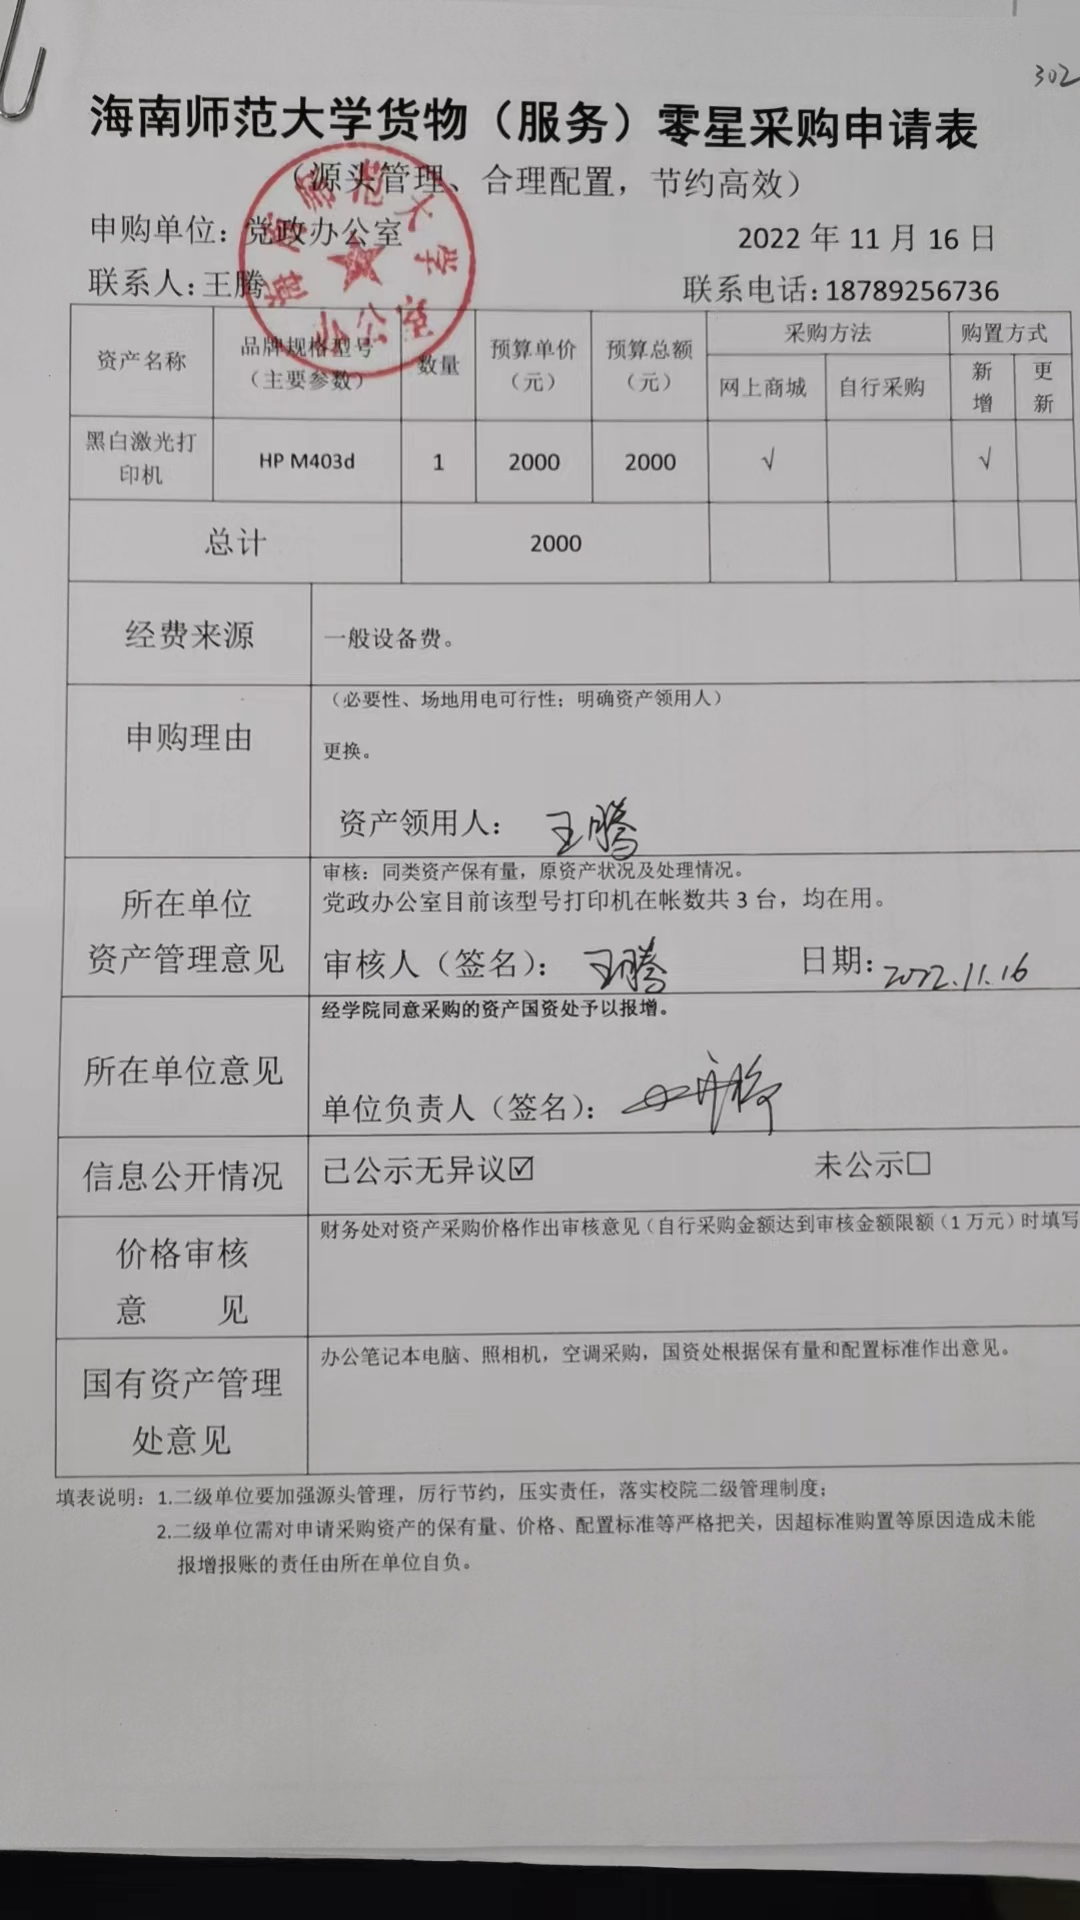 302
海南师范大学货物（服务）零星采购申请表
（源头管理、合理配置，节约高效）
申购单位：党政办公室
2022 年 11 月 16 日
联系人：王腾
联系电话：18789256736
海南师范大学
办公室
资产名称 品牌规格型号（主要参数） 数量 预算单价（元） 预算总额（元） 采购方法 购置方式
网上商城 自行采购 新增 更新
黑白激光打印机 HP M403d 1 2000 2000 √ √
总计 2000
经费来源 一般设备费。
申购理由
（必要性、场地用电可行性；明确资产领用人）
更换。
资产领用人： 王腾
所在单位
资产管理意见
审核：同类资产保有量，原资产状况及处理情况。
党政办公室目前该型号打印机在帐数共 3 台，均在用。
审核人（签名）： 王腾 日期：2022.11.16
所在单位意见
经学院同意采购的资产国资处予以报增。
单位负责人（签名）：
信息公开情况 已公示无异议☑ 未公示☐
价格审核
意 见
财务处对资产采购价格作出审核意见（自行采购金额达到审核金额限额（1 万元）时填写
国有资产管理
处意见
办公笔记本电脑、照相机，空调采购，国资处根据保有量和配置标准作出意见。
填表说明：1.二级单位要加强源头管理，厉行节约，压实责任，落实校院二级管理制度；
2.二级单位需对申请采购资产的保有量、价格、配置标准等严格把关，因超标准购置等原因造成未能
报增报账的责任由所在单位自负。